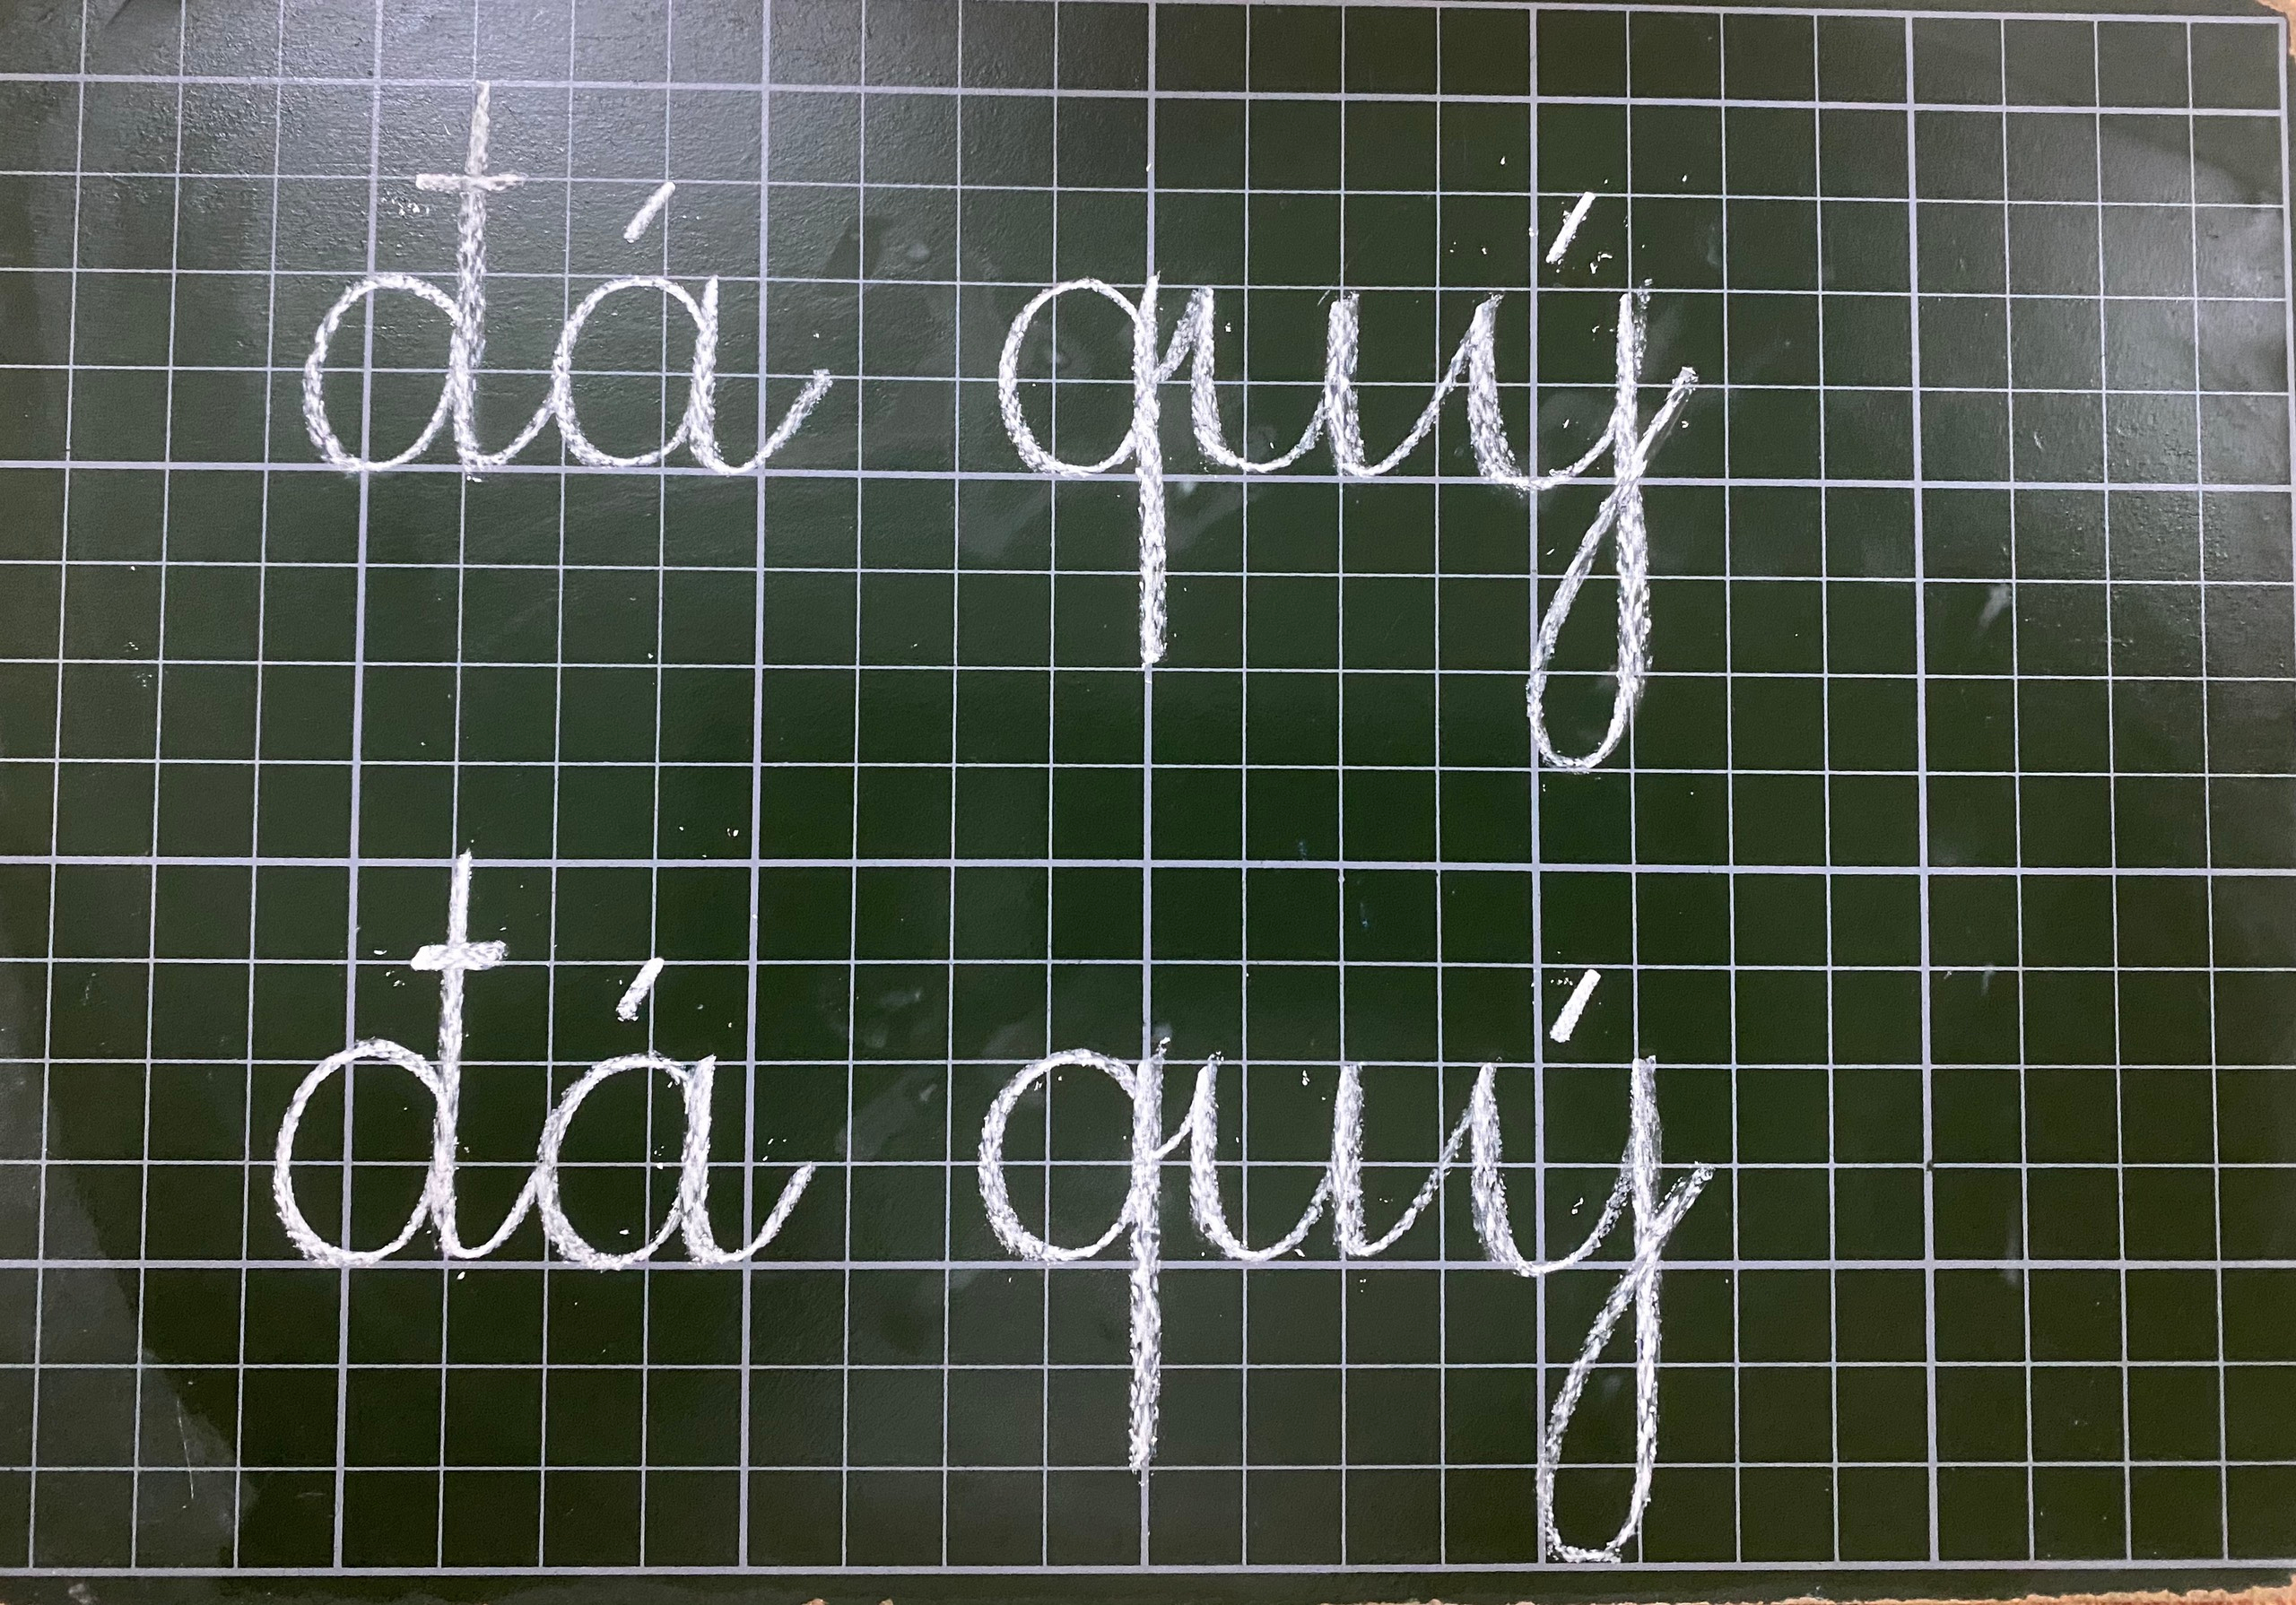 đá quý
đá quý